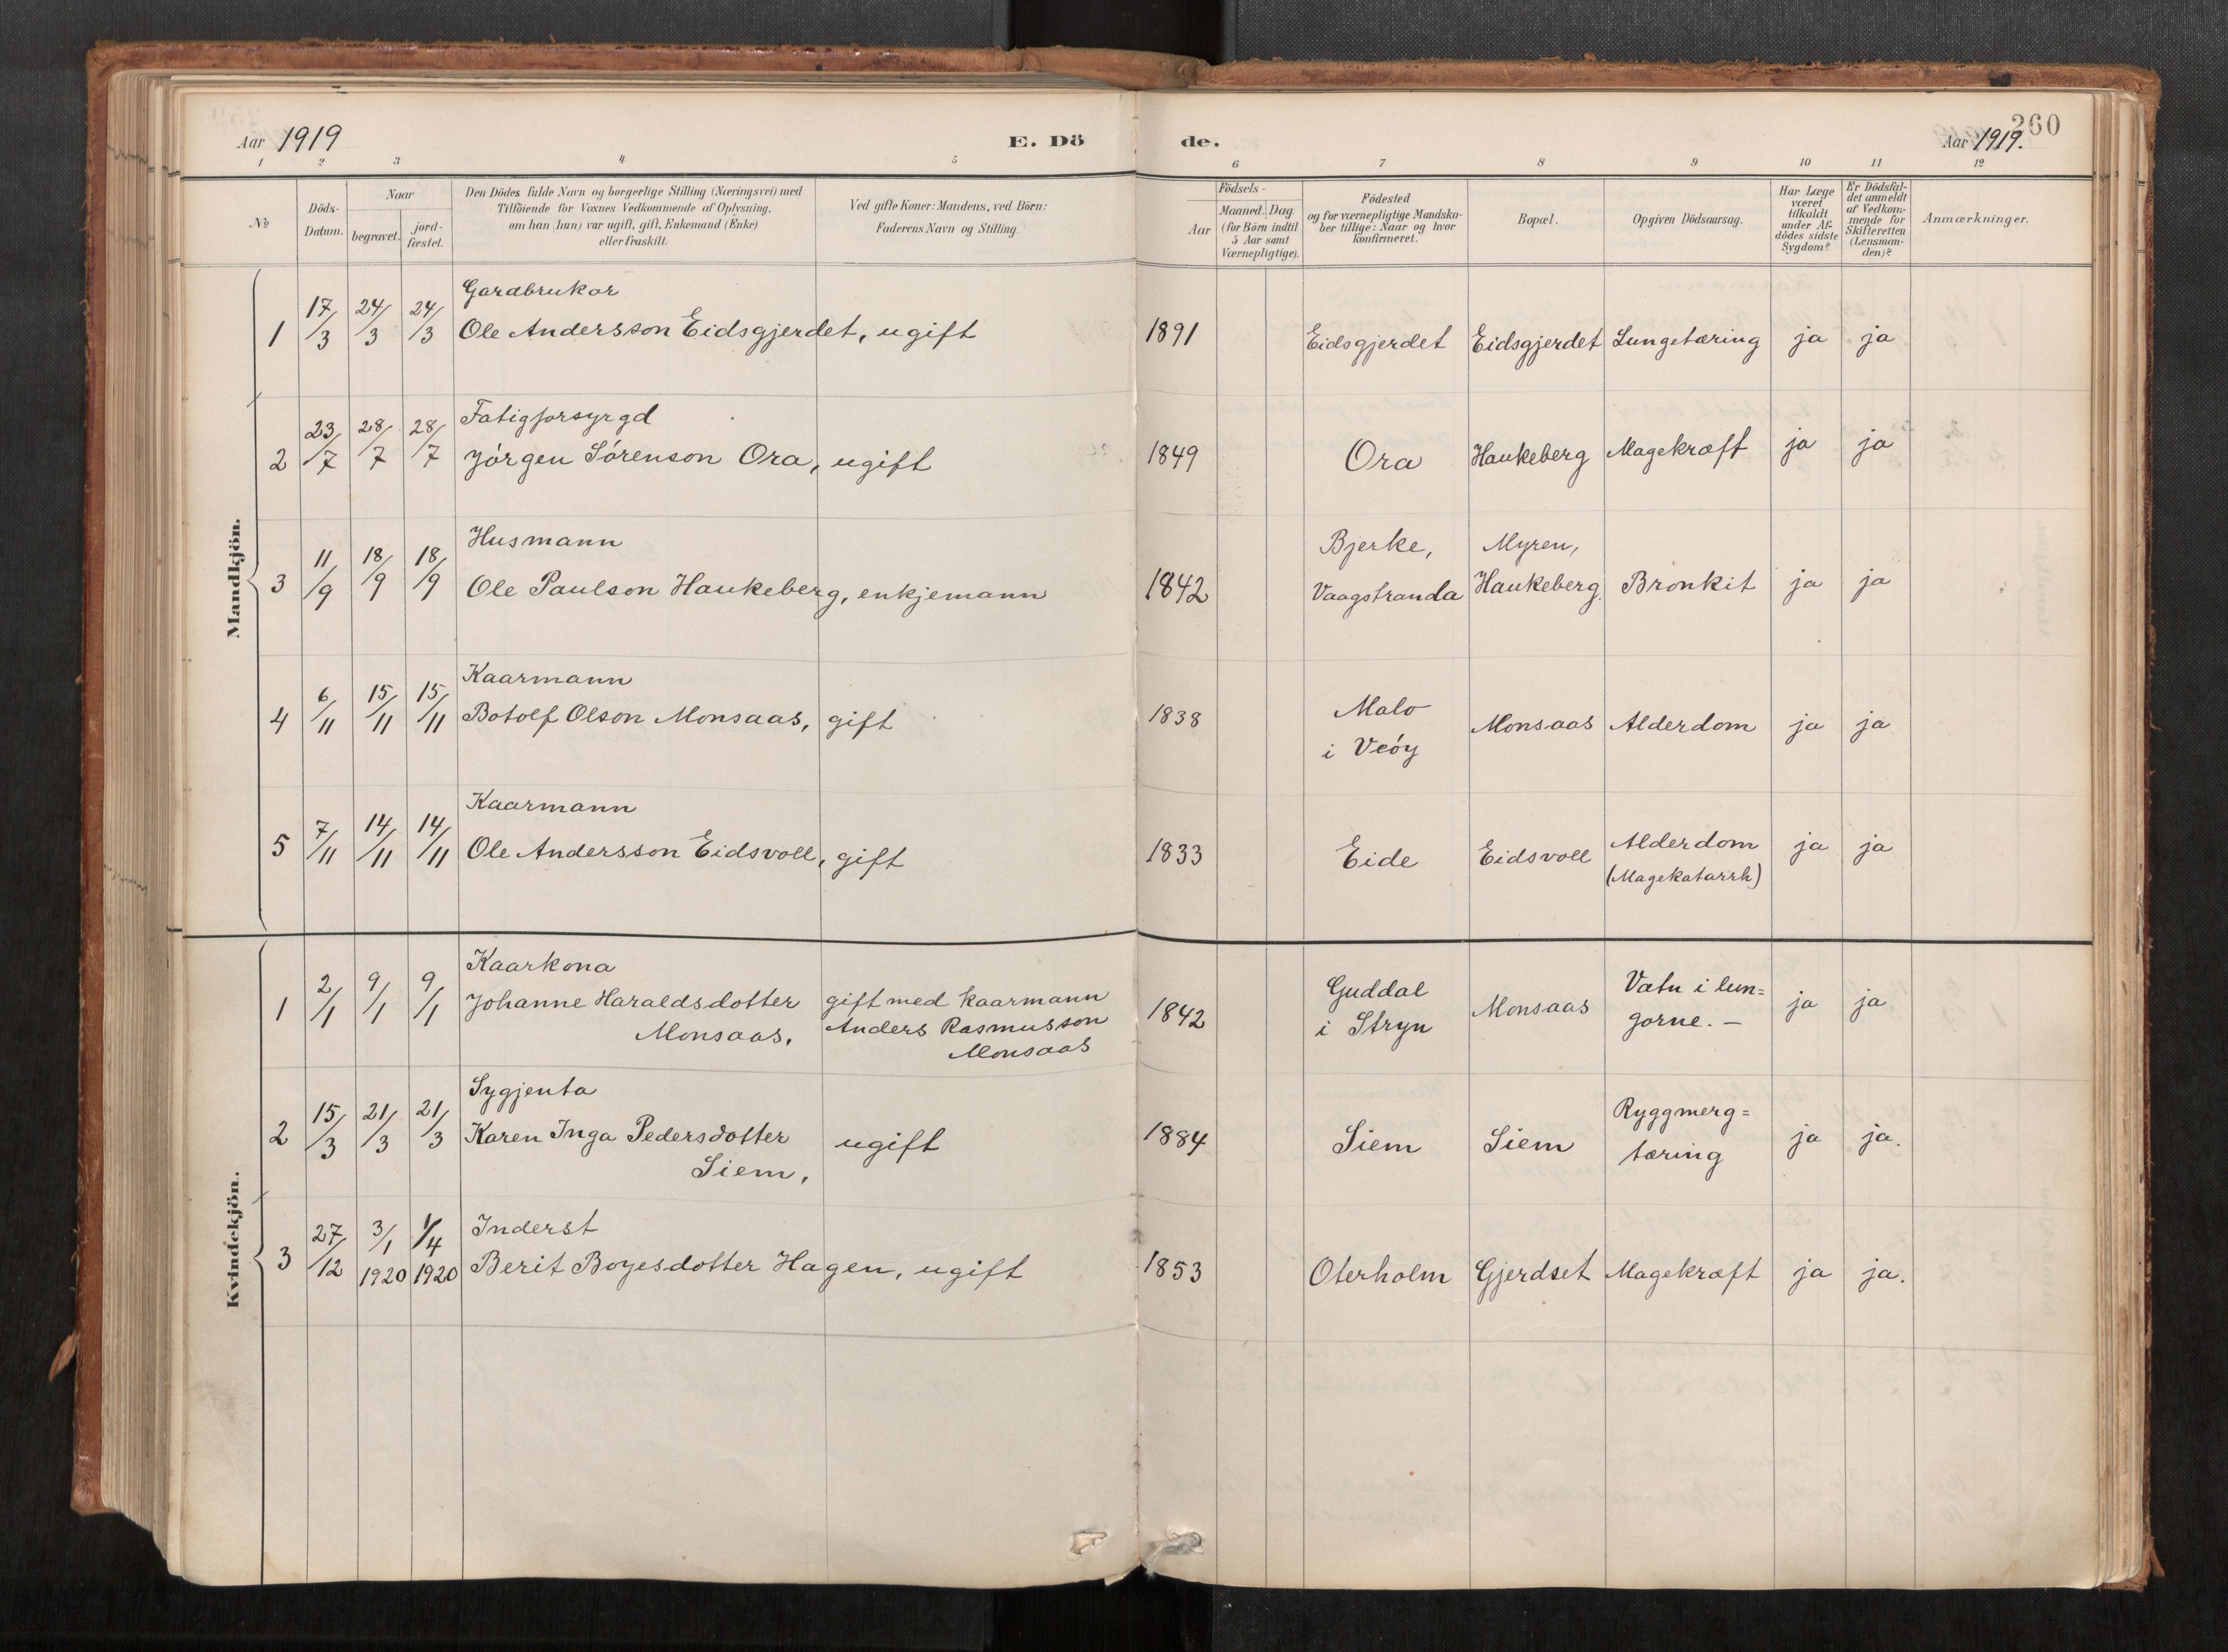 260
Aar 1919
E. Dö
de.
Aar 1919.
1 2 3 4 5 6 7 8 9 10 11 12
№
Döds-
Datum.
Naar
begravet.
jord-
fæstet.
Den Dödes fulde Navn og borgerlige Stilling (Næringsvei) med
Tilföiende for Voxnes Vedkommende af Oplysning,
om han (hun) var ugift, gift, Enkemand (Enke)
eller fraskilt.
Ved gifte Koner: Mandens, ved Börn:
Faderens Navn og Stilling.
Födsels-
Aar
Maaned. Dag
(for Börn indtil
5 Aar samt
Værnepligtige).
Födested
og for værnepligtige Mandska-
ber tillige: Naar og hvor
konfirmeret.
Bopæl.
Opgiven Dödsaarsag.
Har Læge
været
tilkaldt
under Af-
dödes sidste
Sygdom?
Er Dödsfal-
det anmeldt
af Vedkom-
mende for
Skifteretten
(Lensman-
den)?
Anmærkninger.
Mandkjön.
Gardbrukar
1 17/3 24/3 24/3 Ole Andersson Eidsgjerdet, ugift 1891 Eidsgjerdet Eidsgjerdet Lungetæring ja ja
Fatigforsyrgd
2 23/7 28/7 28/7 Jörgen Sörenson Ora, ugift 1849 Ora Haukeberg Magekræft ja ja
Husmann Bjerke, Myren,
3 11/9 18/9 18/9 Ole Paulson Haukeberg, enkjemann 1842 Vaagstranda Haukeberg. Bronkit ja ja
Kaarmann Malo
4 6/11 15/11 15/11 Botolf Olson Monsaas, gift 1838 i Veöy Monsaas Alderdom ja ja
Kaarmann
5 7/11 14/11 14/11 Ole Andersson Eidsvoll, gift 1833 Eide Eidsvoll Alderdom ja ja
(Magekatarrh)
Kvindekjön.
Kaarkona Guddal Vatn i lun=
1 2/1 9/1 9/1 Johanne Haraldsdotter gift med kaarmann 1842 i Stryn Monsaas gorne. — ja ja
Monsaas, Anders Rasmusson
Monsaas
Sygjenta Ryggmerg=
2 15/3 21/3 21/3 Karen Inga Pedersdotter ugift 1884 Siem Siem tæring ja ja.
Siem,
Inderst
3 27/12 3/1 1920 1/4 1920 Berit Boyesdotter Hagen, ugift 1853 Oterholm Gjerdset Magekræft ja ja.